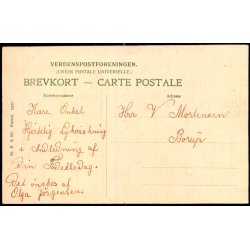 VERDENSPOSTFORENINGEN.
(UNION POSTALE UNIVERSELLE.)
BREVKORT — CARTE POSTALE
Korrespondance
Adresse
Kære Onkel
Hjertelig Lykønskning
i Anledning af
Din Fødselsdag.
Det ønskes af
Olga Jörgensen
Herr V Mortensen
Borup